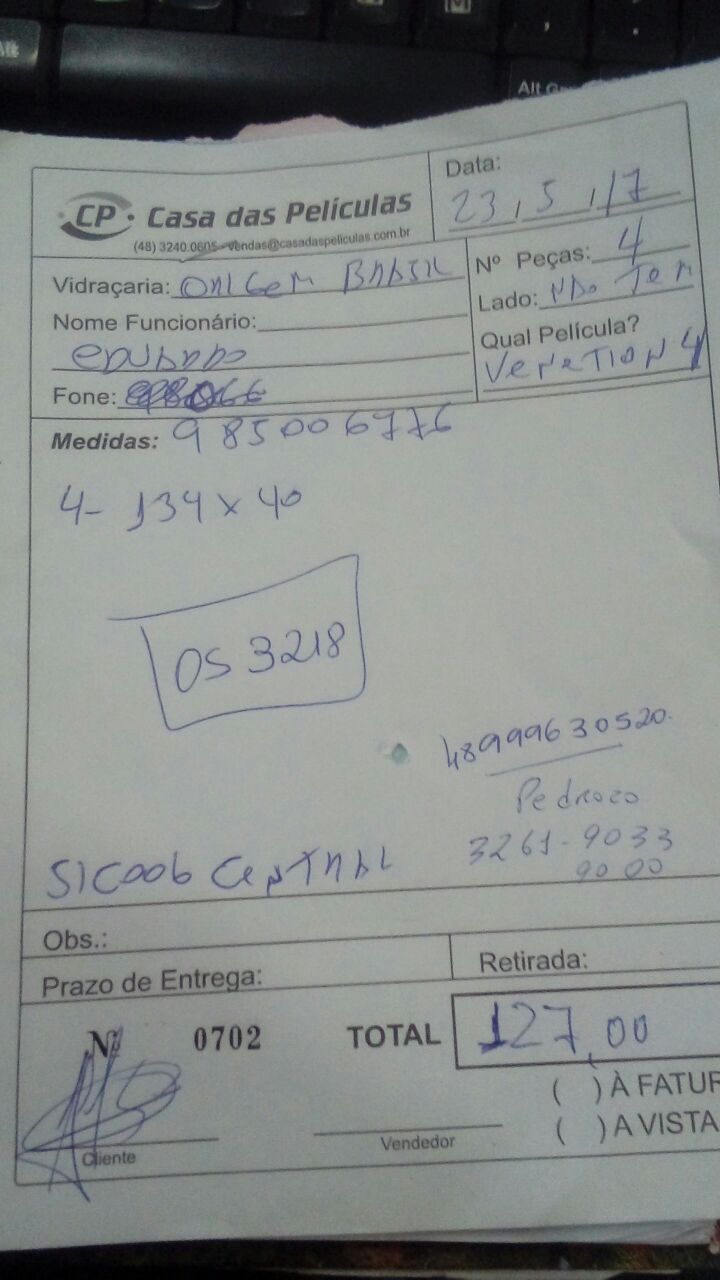 Alt Gr
CP · Casa das Películas
(48) 3240.0605 - vendas@casadaspeliculas.com.br
Data:
23, 5, 17
Vidraçaria: ORIGEM BRASIL
Nome Funcionário:
EDUARDO
Fone:
Nº Peças: 4
Lado: NÃO TEM
Qual Película?
Medidas: 985006776
4- 134 x 40
OS 3218
48999630520.
3261-9033
9000
SICOOB CENTRAL
Obs.:
Prazo de Entrega:
Retirada:
Nº 0702
TOTAL 127,00
( ) À FATUR
( ) A VISTA
Cliente
Vendedor